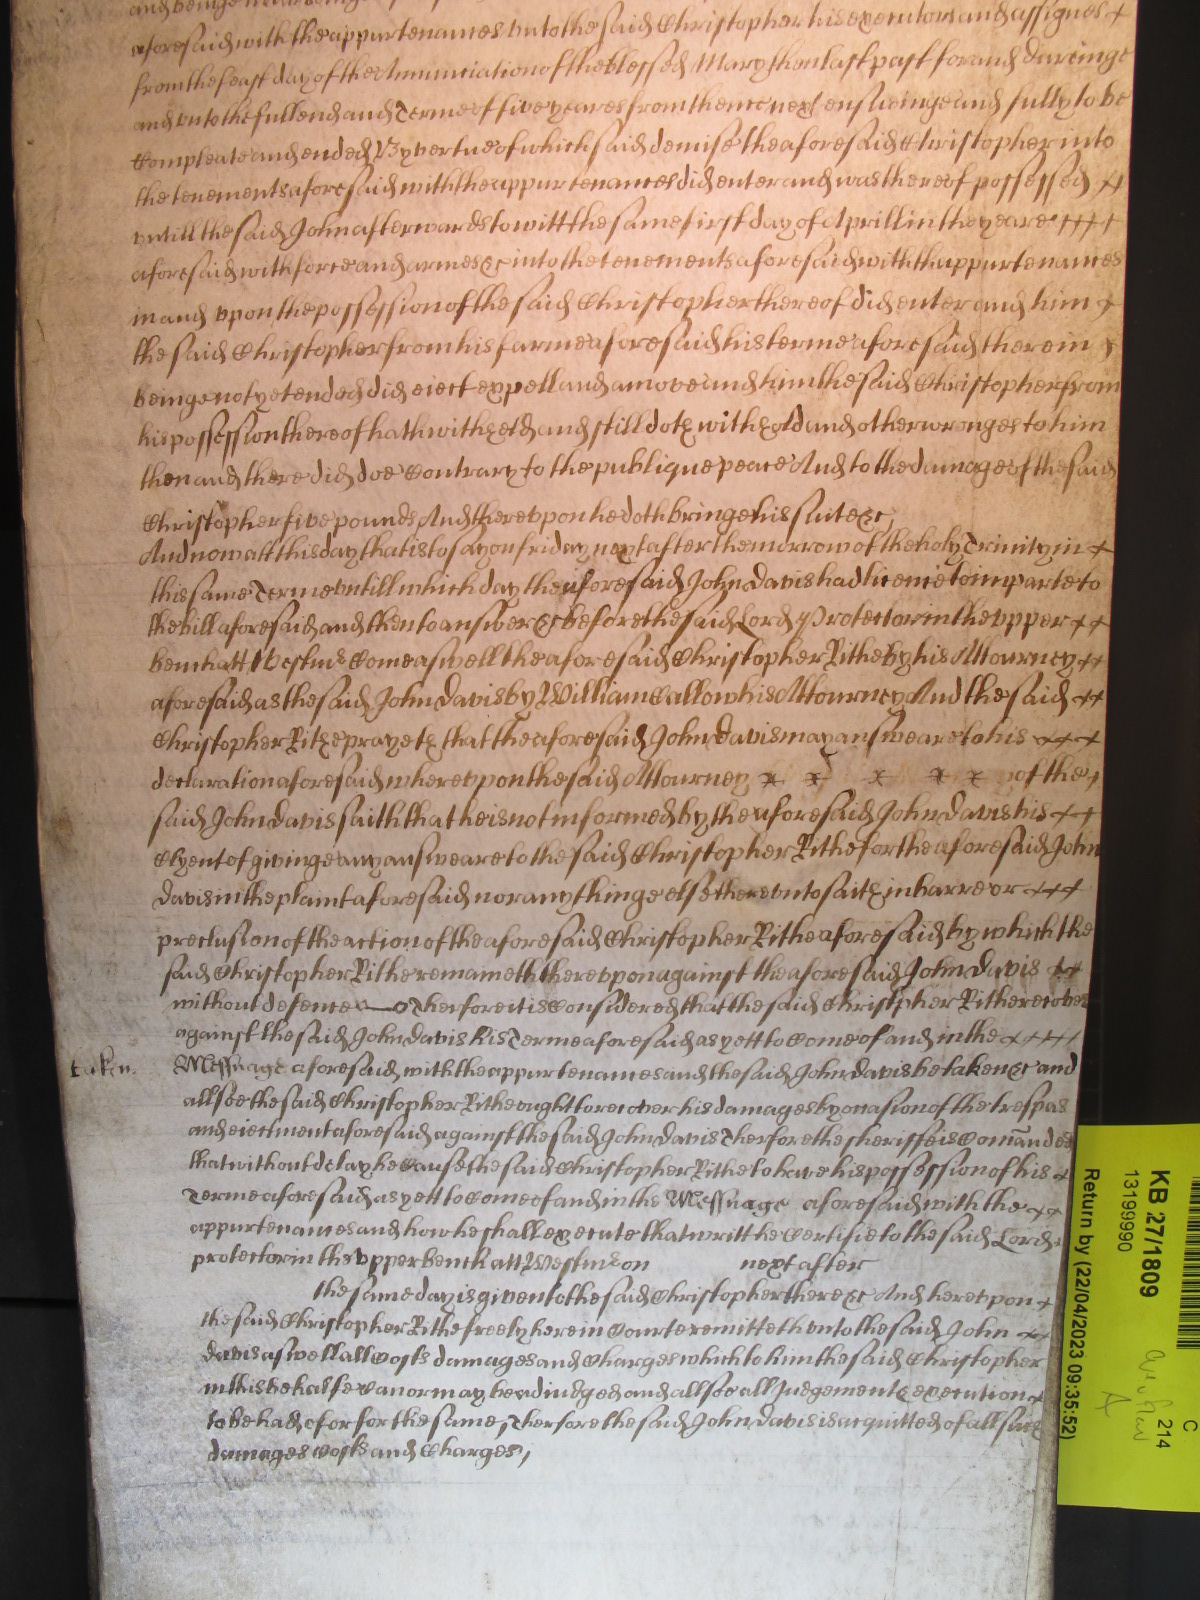 and beinge
aforesaid with the appurtenances vnto the said Christopher his executors and assignes
from the feast day of the Annunciation of the blessed Mary then last past for and dureinge
and vnto the full end and Terme of five yeares from thence next ensueinge and fully to be
Compleate and ended By vertue of which said demise the aforesaid Christopher into
the tenements aforesaid with the appurtenances did enter and was thereof possessed
vntill the said John afterwards to witt the same first day of Aprill in the yeare
aforesaid with force and armes &c into the tenements aforesaid with thappurtenances
in and vpon the possession of the said Christopher thereof did enter and him
the said Christopher from his farme aforesaid his terme aforesaid therein
beinge not yet ended did eiect expell and amove and him the said Christopher from
his possession thereof hath withheld and still doth withhold and other wronges to him
then and there did doe Contrary to the publique peace And to the damage of the said
Christopher five pounds And therevpon he doth bringe his suite &c
And now att this day that is to say on friday next after the morrow of the holy Trinity in
this same Terme vntill which day the aforesaid John Davis had licence to imparle to
the bill aforesaid and then to answer &c before the said Lord Protector in the vpper
bench att Westmr Come aswell the aforesaid Christopher Rithe by his Attourney
aforesaid as the said John Davis by William Callow his Attourney And the said
Christopher Rithe prayeth that the aforesaid John Davis may answeare to his
declaration aforesaid wherevpon the said Attourney of the
said John Davis saith that he is not informed by the aforesaid John Davis his
Clyent of givinge any answeare to the said Christopher Rithe for the aforesaid John
Davis in the plaint aforesaid nor any thinge else therevnto saith in barre or
preclusion of the action of the aforesaid Christopher Rithe aforesaid by which the
said Christopher Rithe remaineth therevpon against the aforesaid John Davis
without defence Therfore it is Considered that the said Christpher Rithe recover
against the said John Davis his Terme aforesaid as yett to Come of and in the
taken. Messuage aforesaid with the appurtenances and the said John Davis be taken &c and
allsoe the said Christopher Rithe ought to recover his damages by occasion of the trespas
and eiectment aforesaid against the said John Davis Therfore the sheriffe is Comanded
that without delay he Cause the said Christopher Rithe to have his possession of his
Terme aforesaid as yett to Come of and in the Messuage aforesaid with the
appurtenances and how he shall execute that writt he Certifie to the said Lord
protector in the vpper bench att Westmr on next after
the same day is given to the said Christopher there &c And herevpon
the said Christopher Rithe freely here in Courte remitteth vnto the said John
Davis aswell all Costs damages and Charges which to him the said Christopher
in this behalfe Can or may be adiudged and allsoe all Judgement & execution
to be had of or for the same, Therfore the said John Davis is acquitted of all such
damages Costs and Charges,
KB 27/1809
13199990
Return by (22/04/2023 09:35:52)
C
214